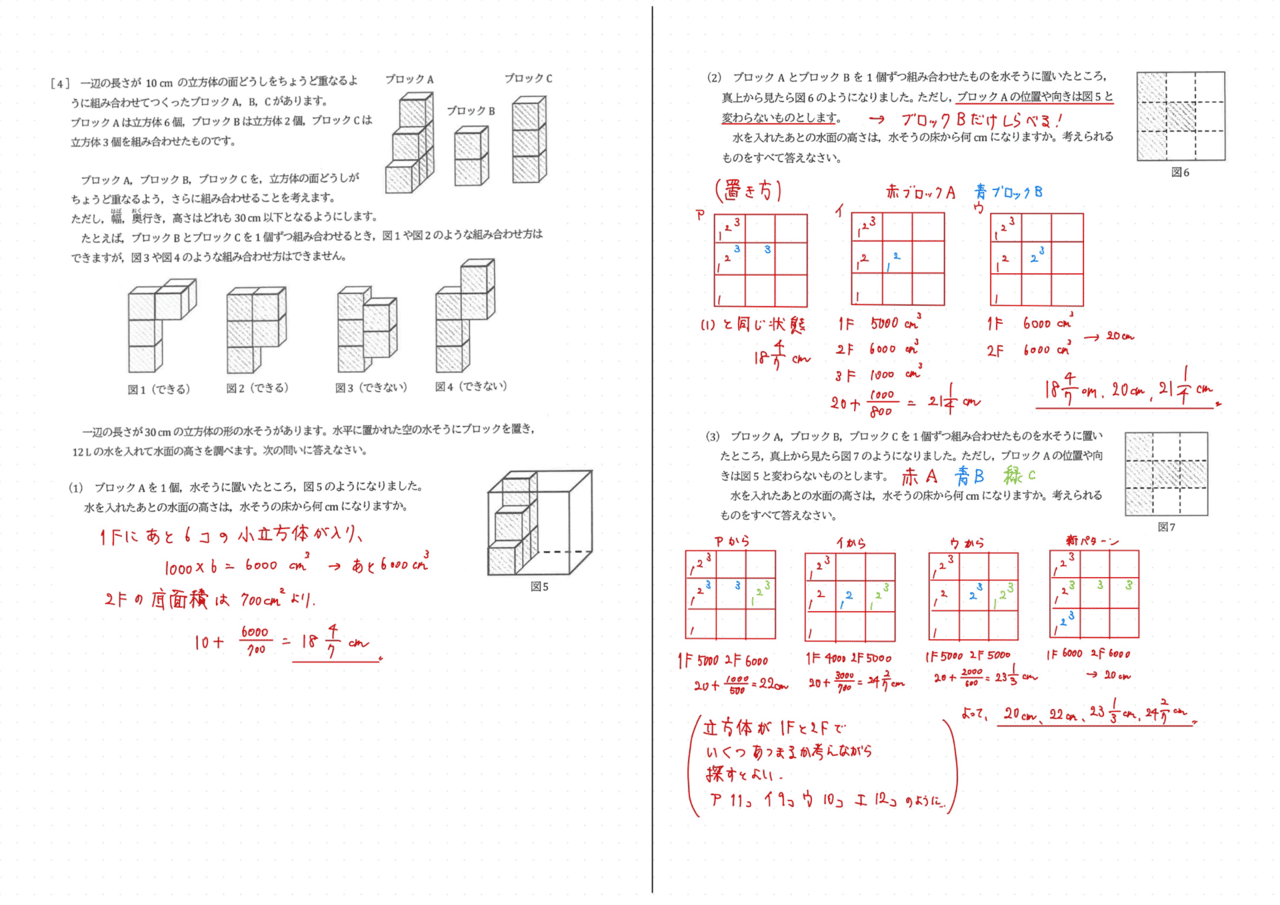 [4] 一辺の長さが 10 cm の立方体の面どうしをちょうど重なるよ
うに組み合わせてつくったブロック A，B，C があります。
ブロック A は立方体 6 個，ブロック B は立方体 2 個，ブロック C は
立方体 3 個を組み合わせたものです。
ブロック A
ブロック B
ブロック C
ブロック A，ブロック B，ブロック C を，立方体の面どうしが
ちょうど重なるよう，さらに組み合わせることを考えます。
ただし，幅，奥行き，高さはどれも 30 cm 以下となるようにします。
はば
おく
たとえば，ブロック B とブロック C を 1 個ずつ組み合わせるとき，図 1 や図 2 のような組み合わせ方は
できますが，図 3 や図 4 のような組み合わせ方はできません。
図1（できる）
図2（できる）
図3（できない）
図4（できない）
一辺の長さが 30 cm の立方体の形の水そうがあります。水平に置かれた空の水そうにブロックを置き，
12 L の水を入れて水面の高さを調べます。次の問いに答えなさい。
(1) ブロック A を 1 個，水そうに置いたところ，図 5 のようになりました。
水を入れたあとの水面の高さは，水そうの床から何 cm になりますか。
図5
1Fにあと6コの小立方体が入り、
1000×6＝6000 cm³ → あと6000cm³
2Fの底面積は 700cm² より.
10+ 6000/700 = 18 4/7 cm
(2) ブロック A とブロック B を 1 個ずつ組み合わせたものを水そうに置いたところ，
真上から見たら図 6 のようになりました。ただし，ブロック A の位置や向きは図 5 と
変わらないものとします。 → ブロックBだけしらべる!
水を入れたあとの水面の高さは，水そうの床から何 cm になりますか。考えられる
ものをすべて答えなさい。
図6
(置き方) 赤ブロックA 青ブロックB
ア イ ウ
1 2 3
1 2 3 3
1
1 2 3
1 2 1 2
1
1 2 3
1 2 2 3
1
(1)と同じ状態
18 4/7 cm
1F 5000 cm³
2F 6000 cm³
3F 1000 cm³
20+ 1000/800 = 21 1/4 cm
1F 6000 cm³
2F 6000 cm³ → 20cm
18 4/7 cm, 20cm, 21 1/4 cm
(3) ブロック A，ブロック B，ブロック C を 1 個ずつ組み合わせたものを水そうに置い
たところ，真上から見たら図 7 のようになりました。ただし，ブロック A の位置や向
きは図 5 と変わらないものとします。 赤A 青B 緑C
水を入れたあとの水面の高さは，水そうの床から何 cm になりますか。考えられる
ものをすべて答えなさい。
図7
アから イから ウから 新パターン
1 2 3
1 2 3 3 1 2 3
1
1 2 3
1 2 1 2 1 2 3
1
1 2 3
1 2 2 3 1 2 3
1
1 2 3
1 2 3 3 3
1 2 3
1F 5000 2F 6000
20+ 1000/500 = 22cm
1F 4000 2F 5000
20+ 3000/700 = 24 2/7 cm
1F 5000 2F 5000
20+ 2000/600 = 23 1/3 cm
1F 6000 2F 6000
→ 20cm
よって、 20cm、22cm、23 1/3 cm、24 2/7 cm
立方体が1Fと2Fで
いくつあつまるか考えながら
探すとよい.
ア 11コ イ 9コ ウ 10コ エ 12コ のように..